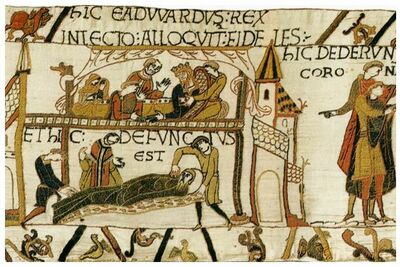 hIC EADVVARDVS: REX
IN LECTO: ALLOQVIT: FIDELES:
ET hIC: DEFVNCTVS
EST
hIC DEDERVN
CORO